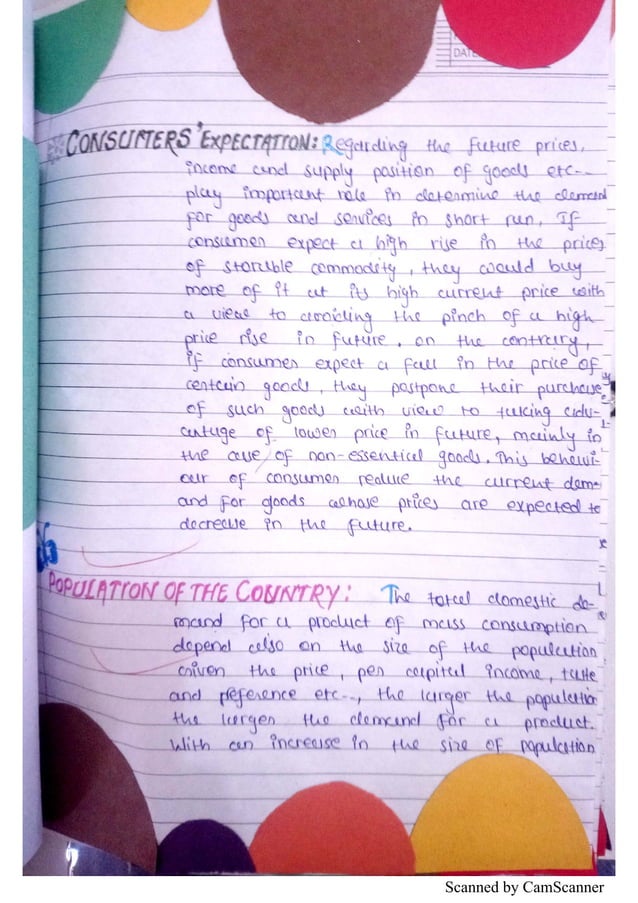 DATE
CONSUMERS' EXPECTATION: Regarding the future prices,
income and supply position of goods etc--
play important role in determine the demand
for goods and services in short run. If
consumer expect a high rise in the prices
of storable commodity, they would buy
more of it at its high current price with
a view to avoiding the pinch of a high
price rise in future. on the contrary,
if consumer expect a fall in the price of
certain goods, they postpone their purchase
of such goods with view to taking adv-
antage of lower price in future, mainly in
the case of non-essential goods. This behavi-
our of consumer reduce the current dem-
and for goods whose prices are expected to
decrease in the future.
POPULATION OF THE COUNTRY: The total domestic de-
mand for a product of mass consumption
depend also on the size of the population
Given the price, per capital income, taste
and preference etc--, the larger the population
the larger the demand for a product.
With an increase in the size of population
Scanned by CamScanner